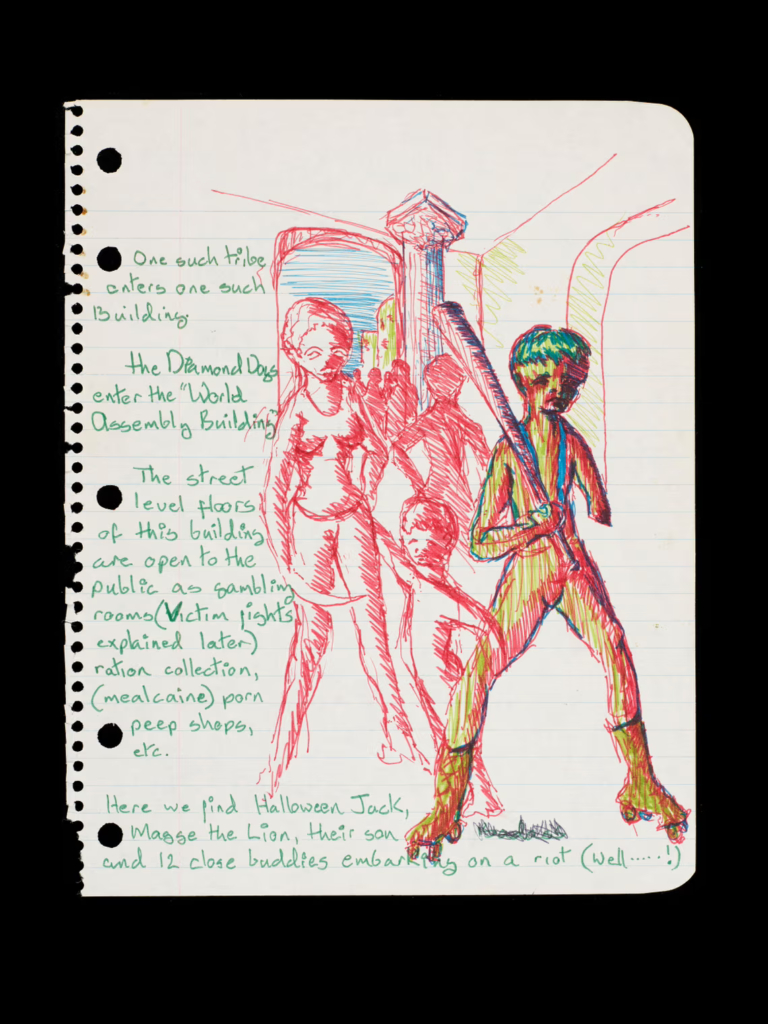 One such tribe
enters one such
Building.
the Diamond Dogs
enter the "World
Assembly Building"
The street
level floors
of this building
are open to the
public as gambling
rooms (Victim fights
explained later)
ration collection,
(mealcaine) porn
peep shops,
etc.
Here we find Halloween Jack,
Magge the Lion, their son
and 12 close buddies embarking on a riot (Well.....!)